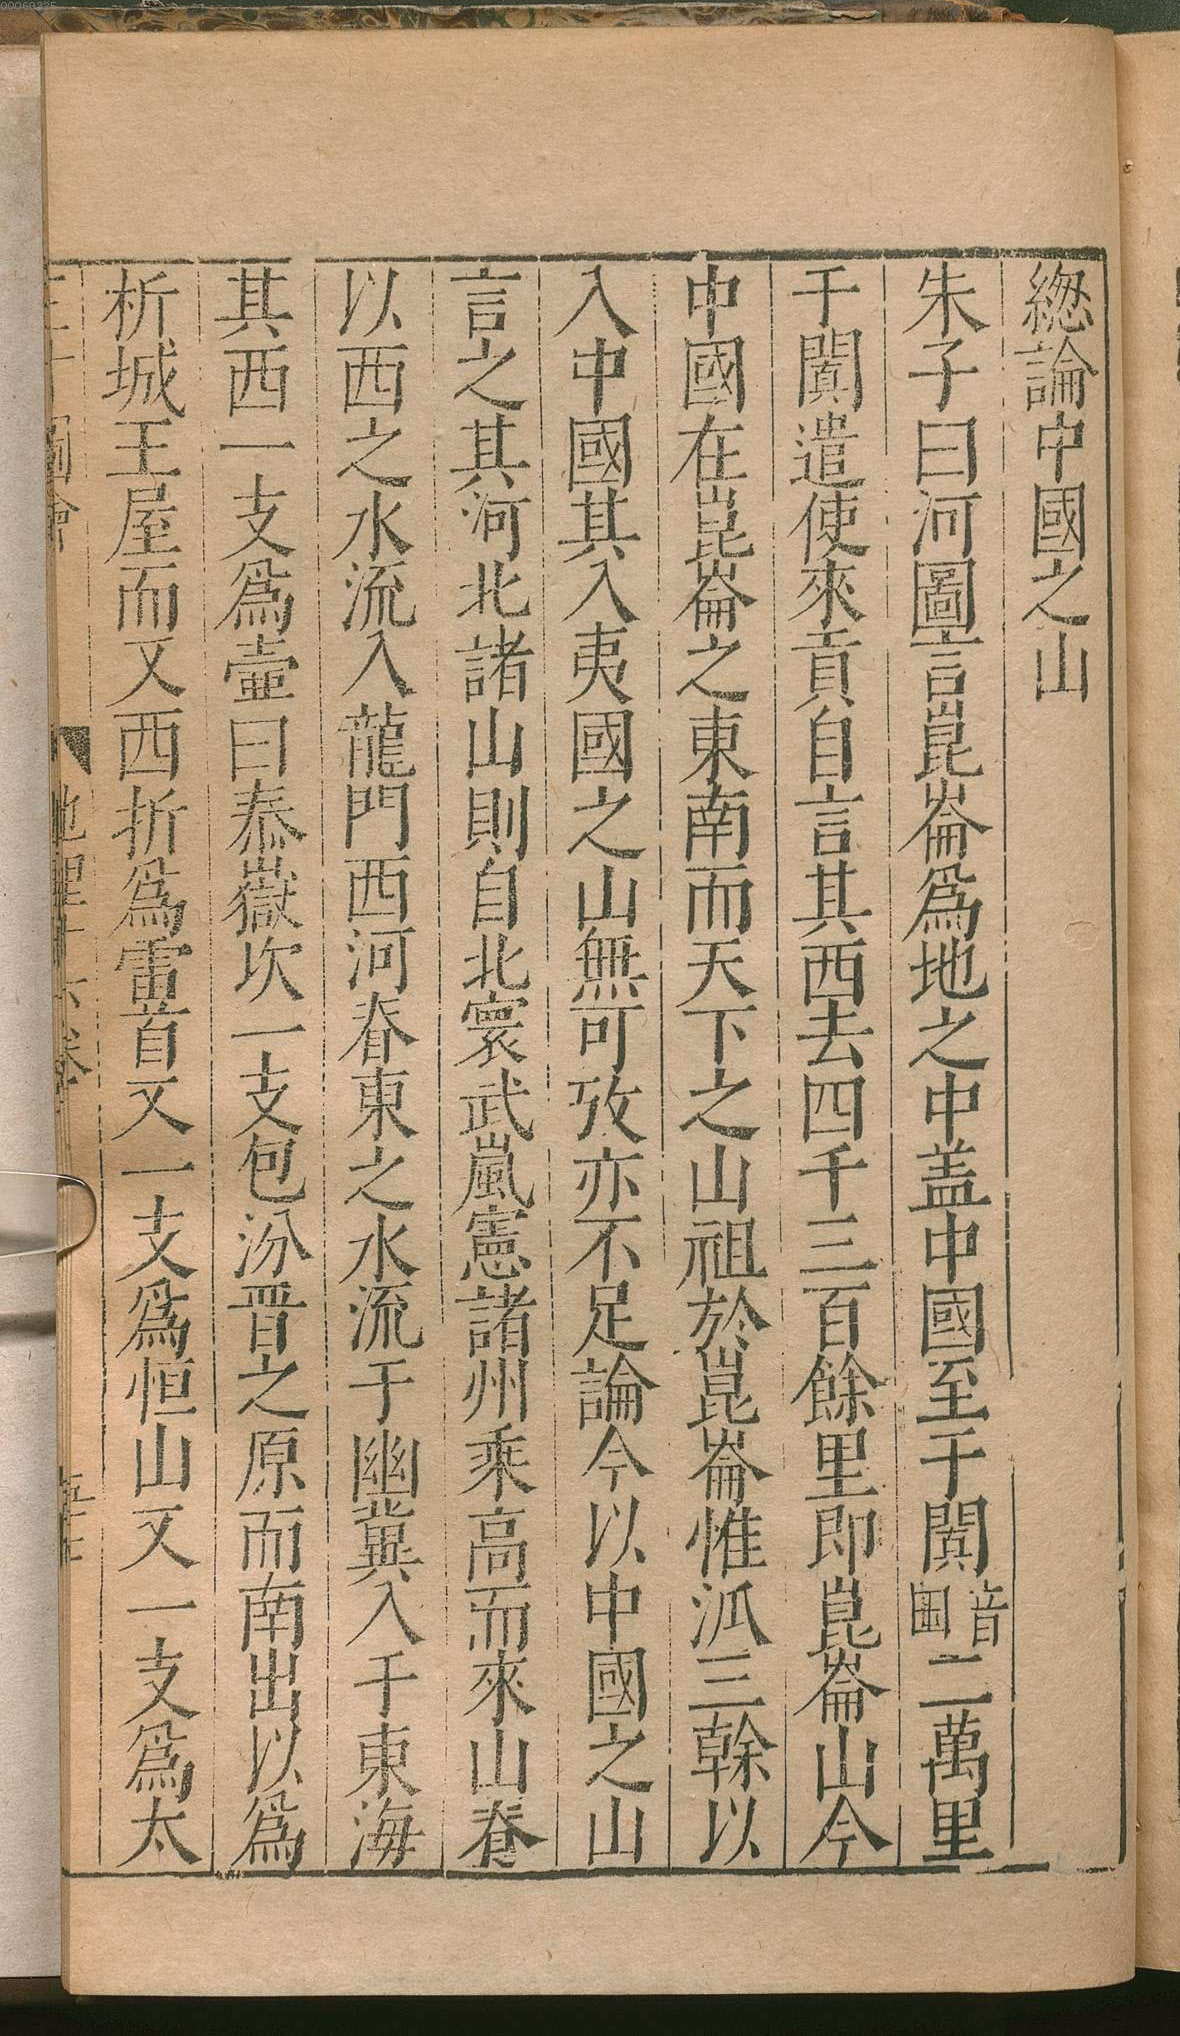 緫論中國之山
朱子曰河圖言崑崙爲地之中盖中國至于闐音國二萬里
于闐遣使來貢自言其西去四千三百餘里即崑崙山今
中國在崑崙之東南而天下之山祖於崑崙惟泒三榦以
入中國其入夷國之山無可攷亦不足論今以中國之山
言之其河北諸山則自北寰武嵐憲諸州乘高而來山脊
以西之水流入龍門西河脊東之水流于幽冀入于東海
其西一支爲壺曰泰嶽坎一支包汾晋之原而南出以爲
析城王屋而又西折爲雷首又一支爲恒山又一支爲太
圖會
地理十六卷
00068325